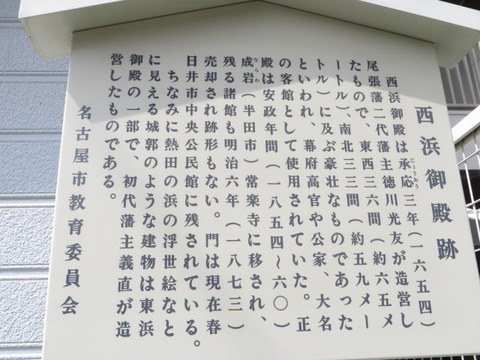 西浜御殿跡
西浜御殿は承応三年(一六五四)
じょうおう
尾張藩二代藩主徳川光友が造営し
たもので、東西三六間(約六五メ
ートル)、南北三三間(約五九メー
トル)に及ぶ豪壮なものであった
といわれ、幕府高官や公家、大名
の客館として使用されていた。正
殿は安政年間(一八五四~六〇)
成岩(半田市)常楽寺に移され、
ならわ
残る諸館も明治六年(一八七三)
売却され跡形もない。門は現在春
日井市中央公民館に残されている。
ちなみに熱田の浜の浮世絵など
に見える城郭のような建物は東浜
御殿の一部で、初代藩主義直が造
営したものである。
名古屋市教育委員会